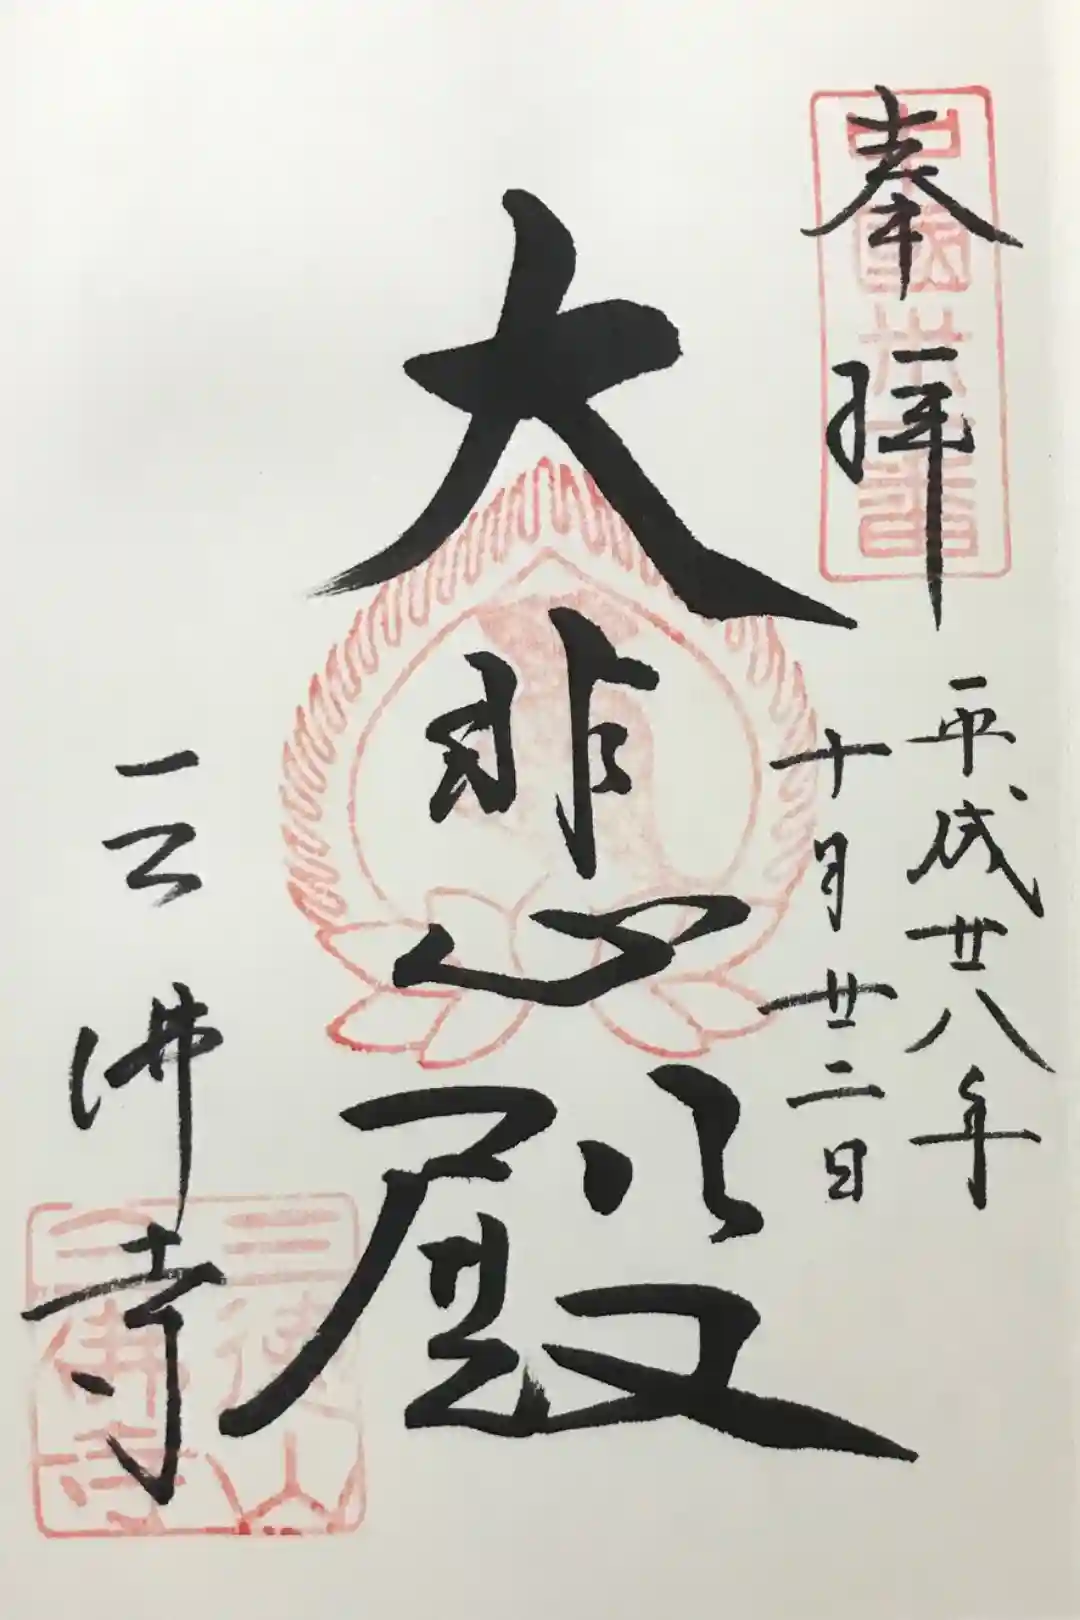 奉拝
平成廿八年
十月廿二日
大悲殿
三佛寺
中國卅一番
三徳山
三佛寺